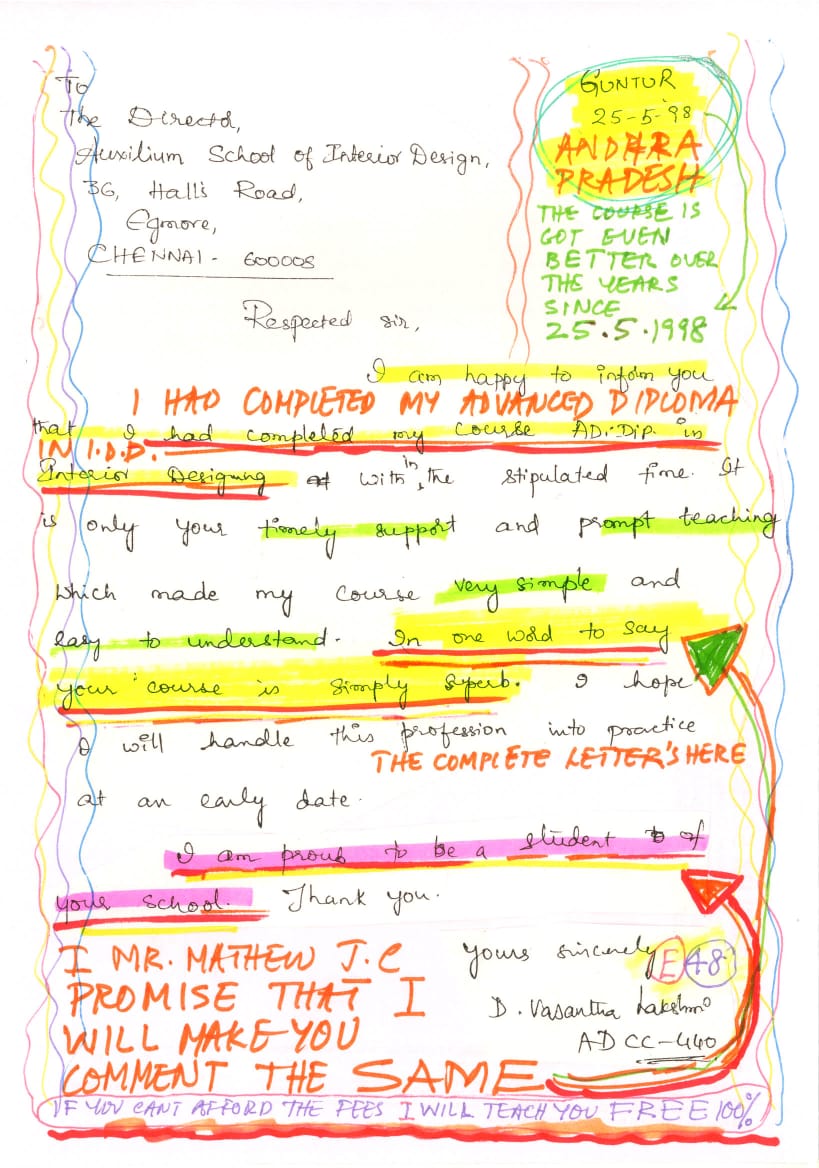 To
The Director,
Auxilium School of Interior Design,
36, Hall's Road,
Egmore,
CHENNAI - 600008
GUNTUR
25-5-98
ANDHRA
PRADESH
THE COURSE IS
GOT EVEN
BETTER OVER
THE YEARS
SINCE
25.5.1998
Respected sir,
I am happy to inform you
I HAD COMPLETED MY ADVANCED DIPLOMA
that I had completed my course AD.Dip. in
IN I.D.D.
Interior Designing with in the stipulated time. It
is only your timely support and prompt teaching
which made my course very simple and
easy to understand. In one word to say
your course is simply superb. I hope
I will handle this profession into practice
THE COMPLETE LETTER'S HERE
at an early date.
I am proud to be a student of
your school. Thank you.
Yours sincerely
E 48
D. Vasantha Lakshmi
AD CC-440
I MR. MATHEW J.C
PROMISE THAT I
WILL MAKE YOU
COMMENT THE SAME
IF YOU CANT AFFORD THE FEES I WILL TEACH YOU FREE 100%